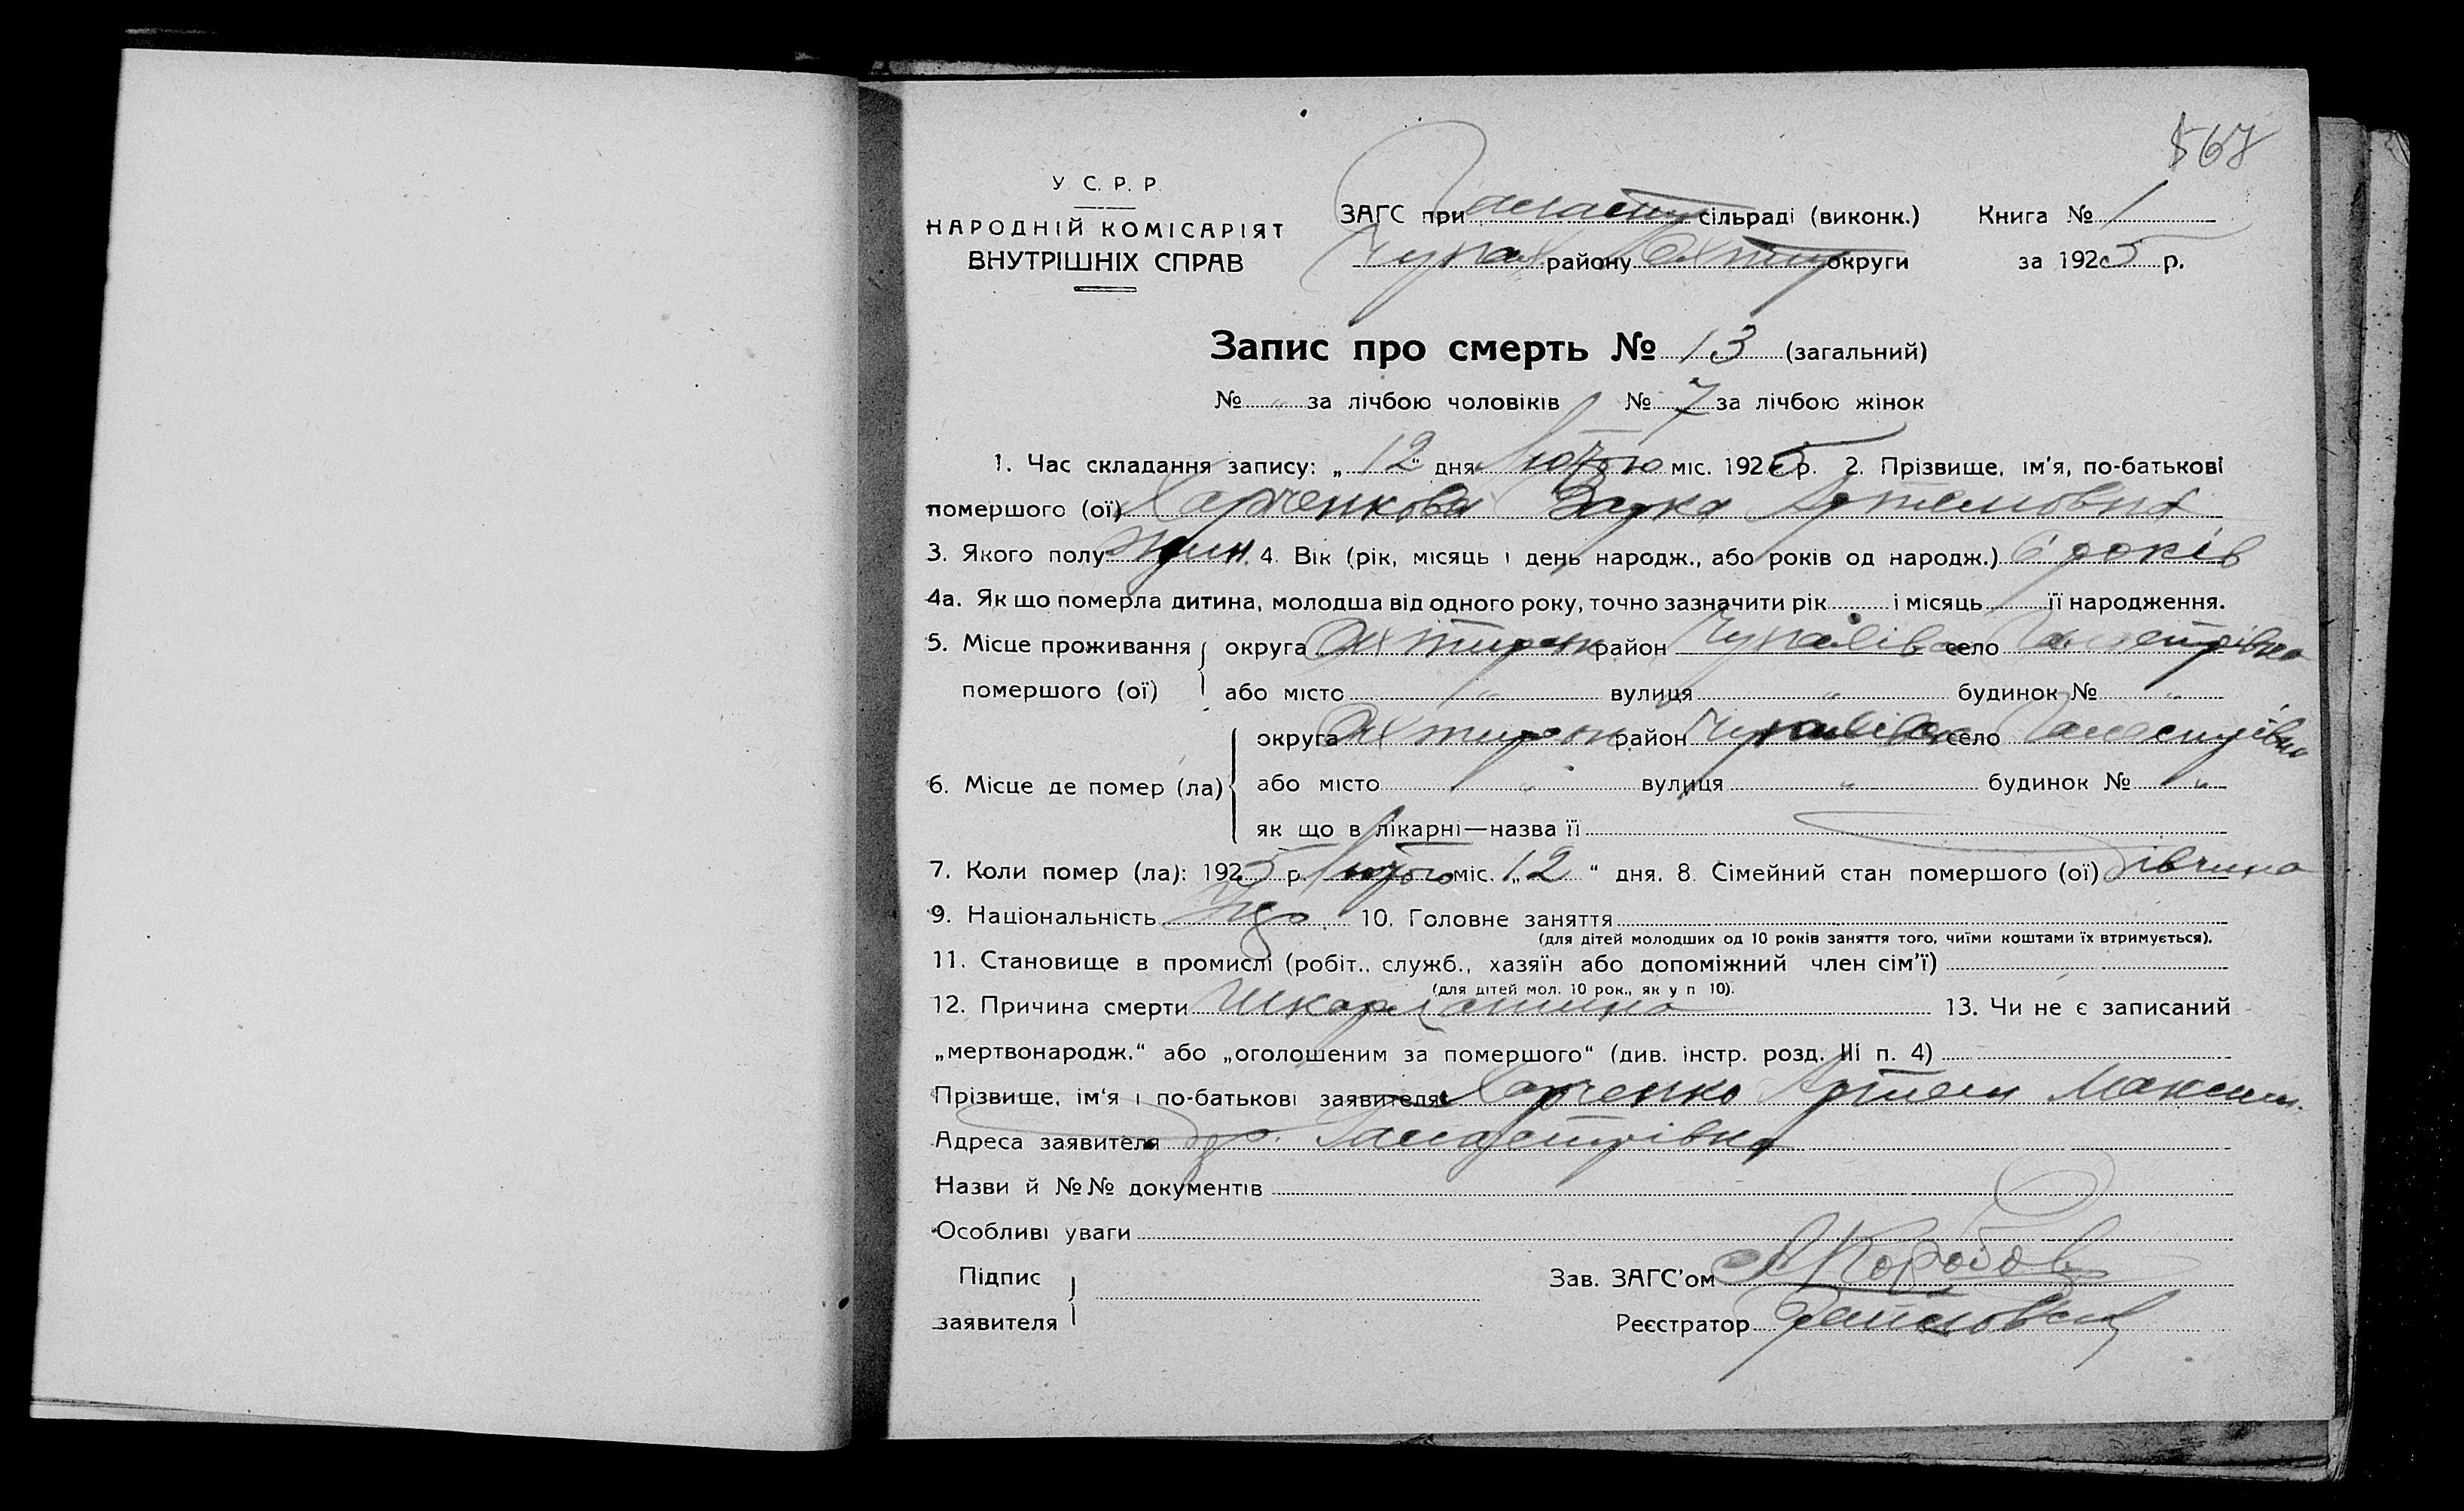 567
У С. Р. Р.
НАРОДНІЙ КОМІСАРІЯТ
ВНУТРІШНІХ СПРАВ
ЗАГС при сільраді (виконк.) Книга № 1
Чупах району Охтир округи за 1925 р.
Запис про смерть № 13 (загальний)
№ " за лічбою чоловіків № 7 за лічбою жінок
1. Час складання запису: „12" дня Лютого міс. 1925 р. 2. Прізвище, ім'я, по-батькові
помершого (ої) Харченкова Артемовна
3. Якого полу жин. 4. Вік (рік, місяць і день народж., або років од народж.) 6 років
4а. Як що померла дитина, молодша від одного року, точно зазначити рік і місяць її народження.
5. Місце проживання округа Охтирськ район Чупахівськ село
помершого (ої) або місто " вулиця " будинок № "
округа Охтирськ район Чупахівськ село
6. Місце де помер (ла) або місто " вулиця " будинок № "
як що в лікарні—назва її
7. Коли помер (ла): 1925 р. Лютого міс. „12" дня. 8. Сімейний стан помершого (ої) дівчина
9. Національність Укр 10. Головне заняття
(для дітей молодших од 10 років заняття того, чиїми коштами їх втримується).
11. Становище в промислі (робіт., служб., хазяїн або допоміжний член сім'ї)
(для дітей мол. 10 рок., як у п 10).
12. Причина смерти Шкарлатина 13. Чи не є записаний
„мертвонародж." або „оголошеним за помершого" (див. інстр. розд. III п. 4)
Прізвище, ім'я і по-батькові заявителя Харченко Артем Максим.
Адреса заявителя
Назви й №№ документів
Особливі уваги
Підпис Зав. ЗАГС'ом Коробов
заявителя Реєстратор